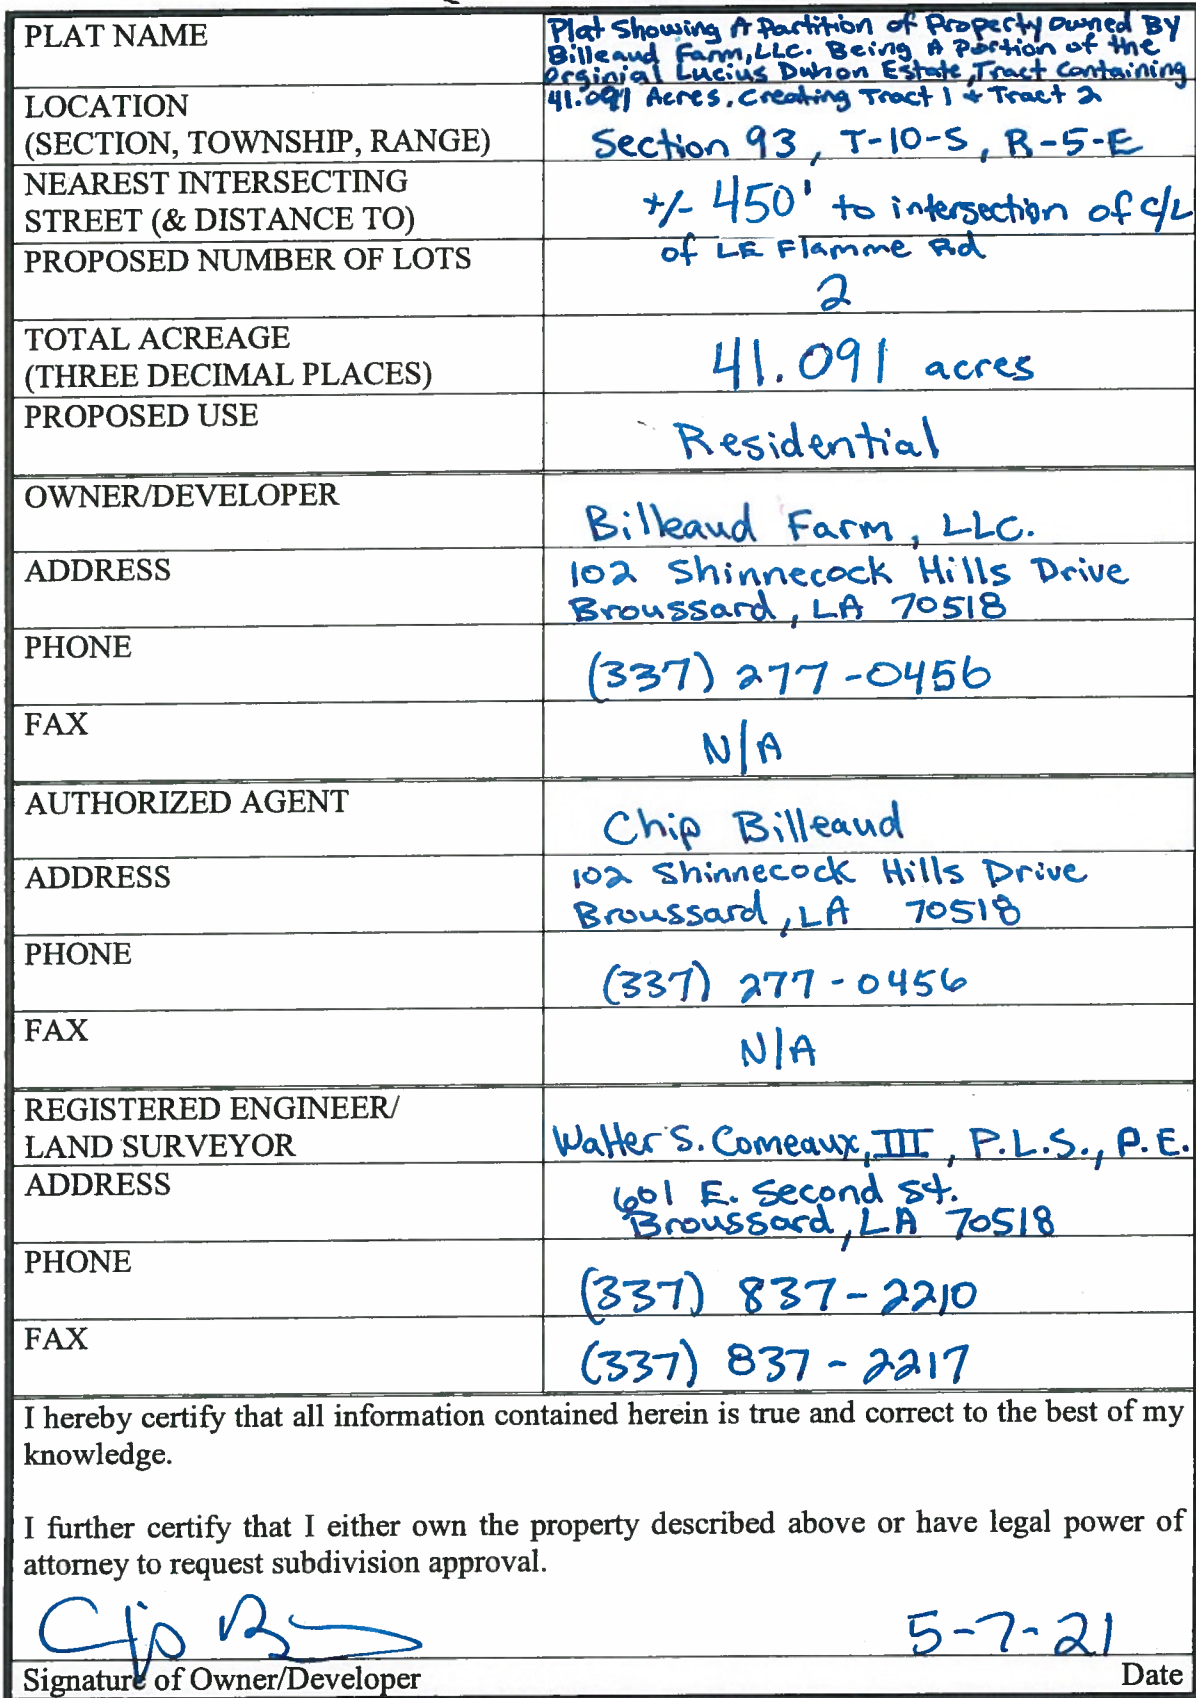 PLAT NAME
Plat Showing A Partition of Property Owned By
Billeaud Farm, LLC. Being A Portion of the
Orginial Lucius Duhon Estate, Tract Containing
41.091 Acres. Creating Tract 1 + Tract 2
LOCATION
(SECTION, TOWNSHIP, RANGE)
Section 93, T-10-S, R-5-E
NEAREST INTERSECTING
STREET (& DISTANCE TO)
+/- 450' to intersection of C/L
of LE Flamme Rd
PROPOSED NUMBER OF LOTS
2
TOTAL ACREAGE
(THREE DECIMAL PLACES)
41.091 acres
PROPOSED USE
Residential
OWNER/DEVELOPER
Billeaud Farm, LLC.
ADDRESS
102 Shinnecock Hills Drive
Broussard, LA 70518
PHONE
(337) 277-0456
FAX
N/A
AUTHORIZED AGENT
Chip Billeaud
ADDRESS
102 Shinnecock Hills Drive
Broussard, LA 70518
PHONE
(337) 277-0456
FAX
N/A
REGISTERED ENGINEER/
LAND SURVEYOR
Walter S. Comeaux, III, P.L.S., P.E.
ADDRESS
601 E. Second St.
Broussard, LA 70518
PHONE
(337) 837-2210
FAX
(337) 837-2217
I hereby certify that all information contained herein is true and correct to the best of my
knowledge.
I further certify that I either own the property described above or have legal power of
attorney to request subdivision approval.
5-7-21
Signature of Owner/Developer
Date